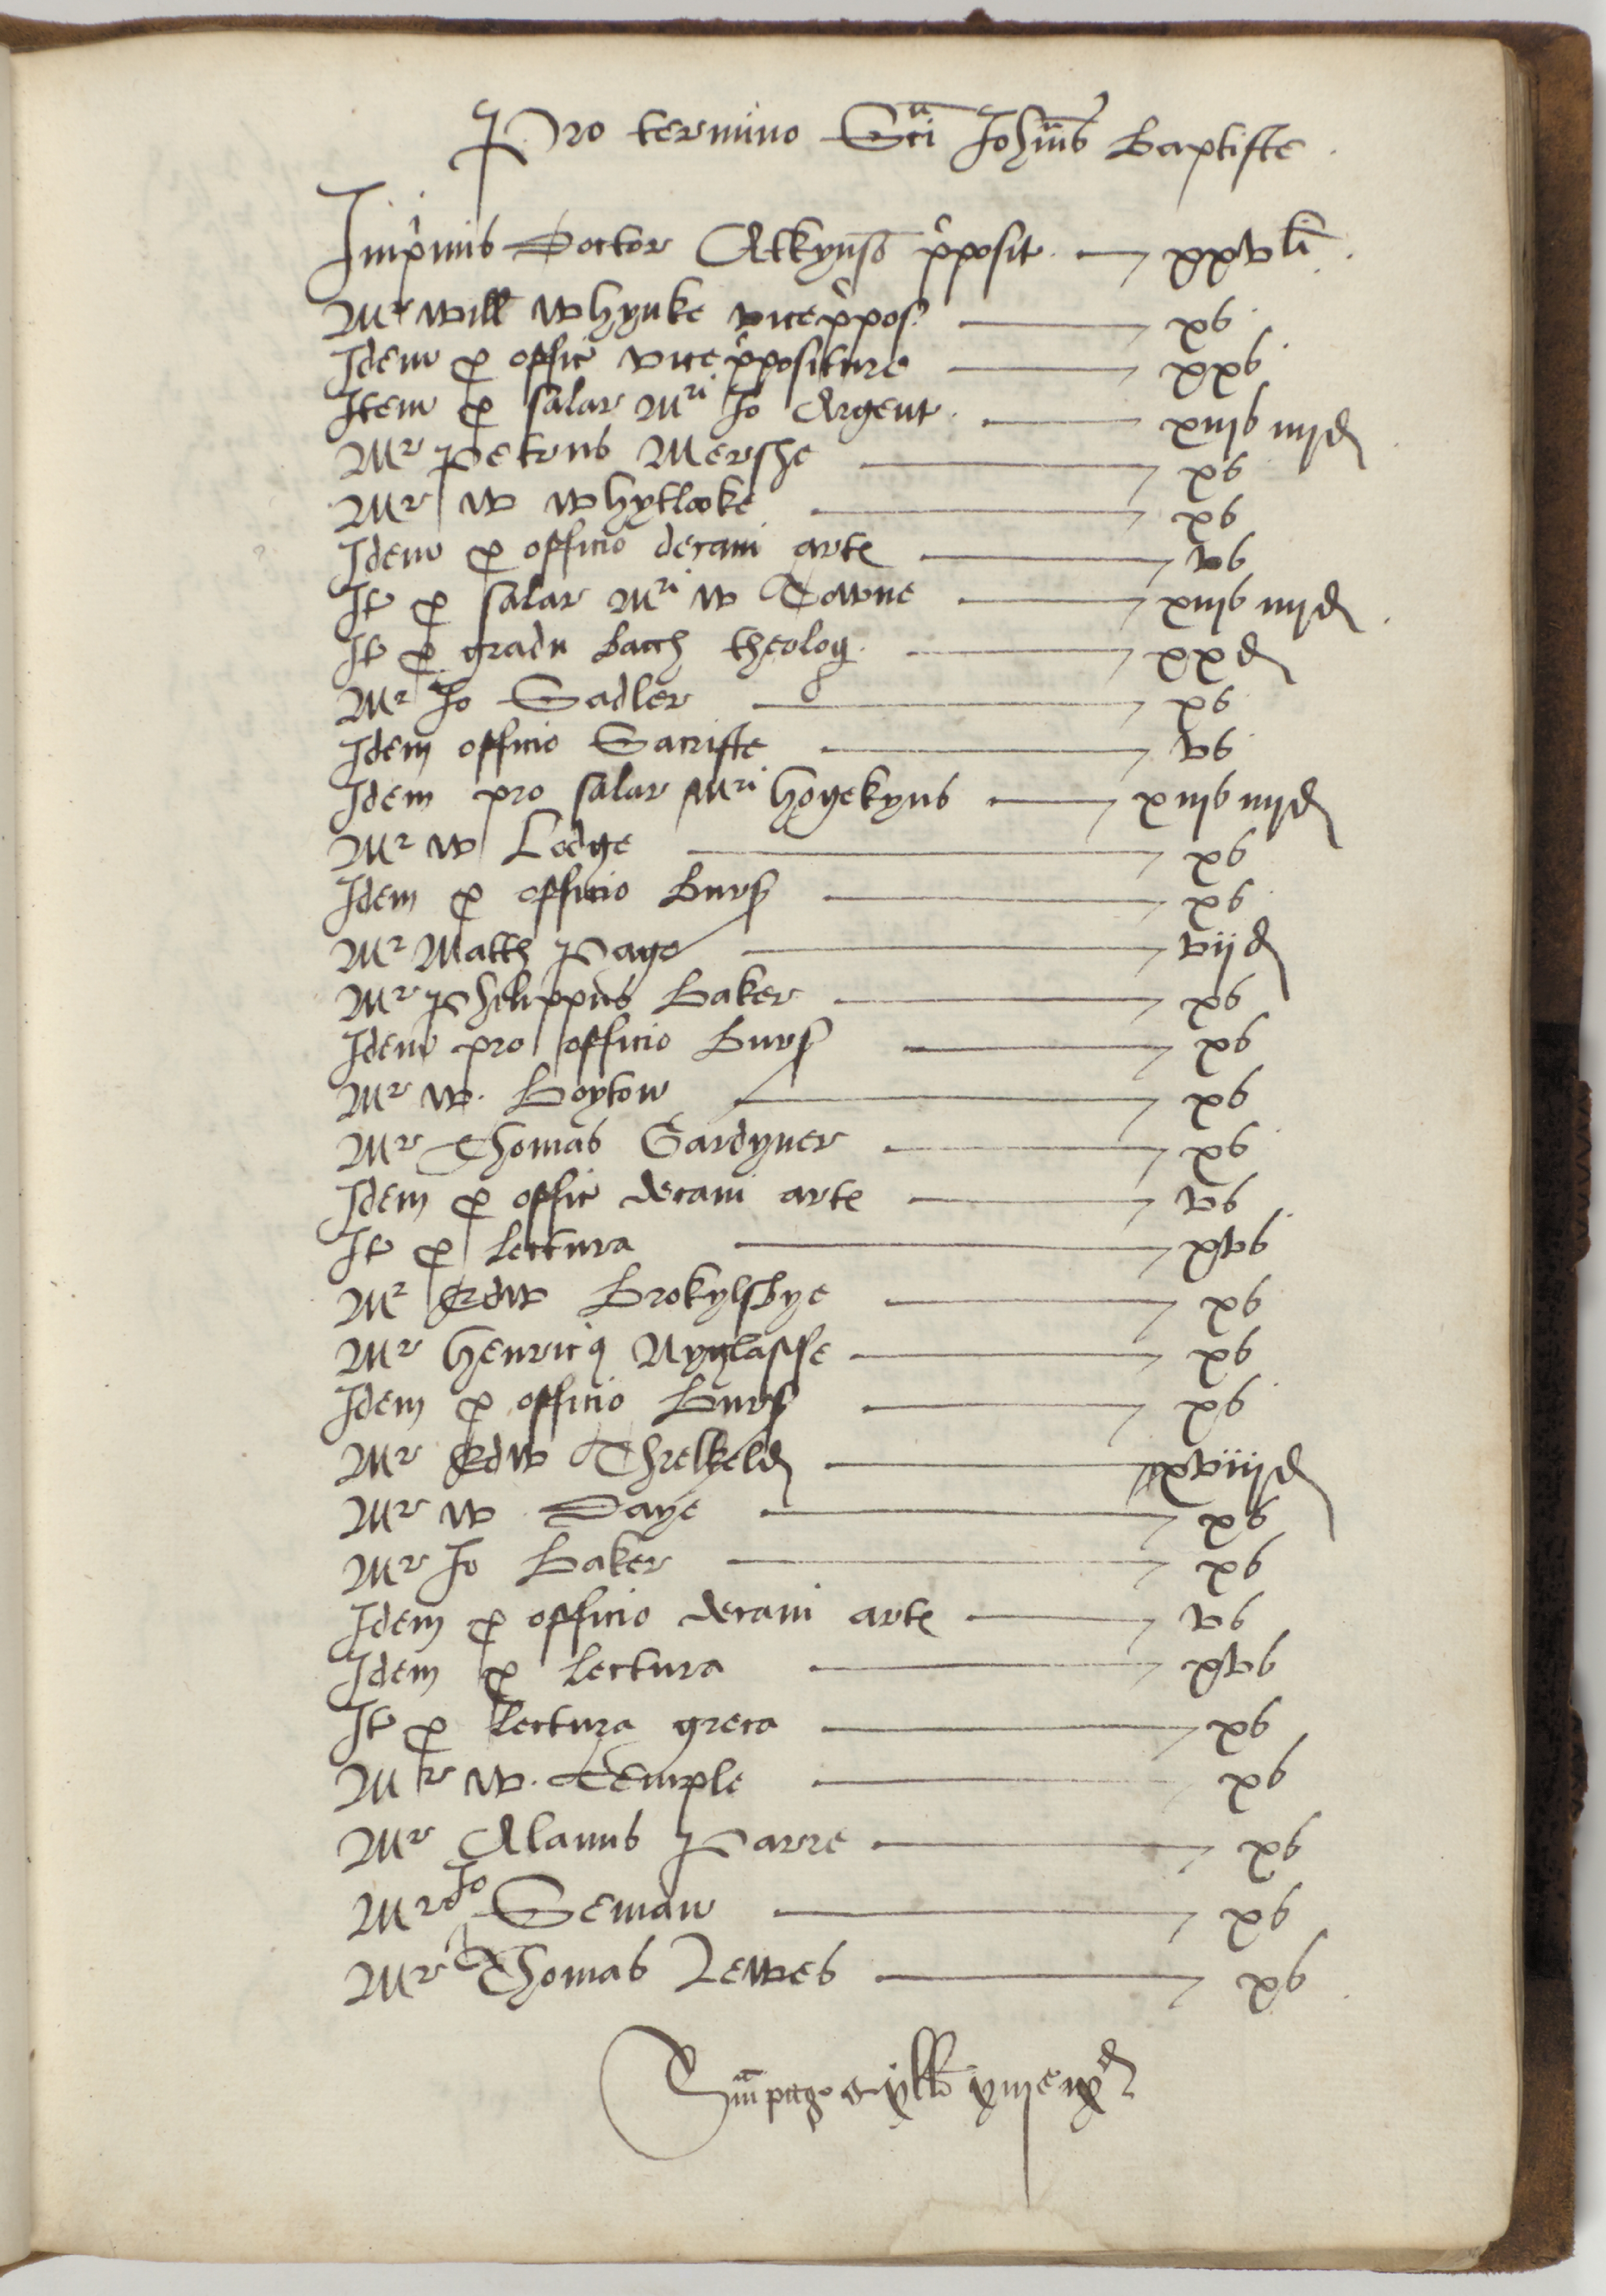 Pro termino Sci Johnis Baptiste
Inprimis Doctor Atkynso pposit. xxv li
Mr Will Whynke vicepposs xs
Idem p offic vicepposicture xxs
Item p salar Mri Jo Argent. xiijs iiijd
Mr Petrus Mershe xs
Mr W Whytlooke xs
Idem p officio decani arte vs
It p salar Mri W Towne xiijs iiijd
It p gradu bacch theolog. xxd
Mr Jo Sadler xs
Idem officio Sacriste vs
Idem pro salar Mri Hogekyns xiijs iiijd
Mr W Lodge xs
Idem p officio Burs xs
Mr Matth Page vijd
Mr Philippus Baker xs
Idem pro officio Burs xs
Mr W. Boyton xs
Mr Thomas Gardyner xs
Idem p offic decani arte vs
It p lectura xvs
Mr Edw Brokylsbye xs
Mr Henricus xs
Idem p officio Burs xs
Mr Edw Threlkeld xviijd
Mr W Daye xs
Mr Jo Baker xs
Idem p officio decani arte vs
Idem p lectura xvs
It p lectura greca xs
Mr W. Temple xs
Mr Alanus Parre xs
Mr Jo Seman xs
Mr Thomas Lewes xs
Sm page